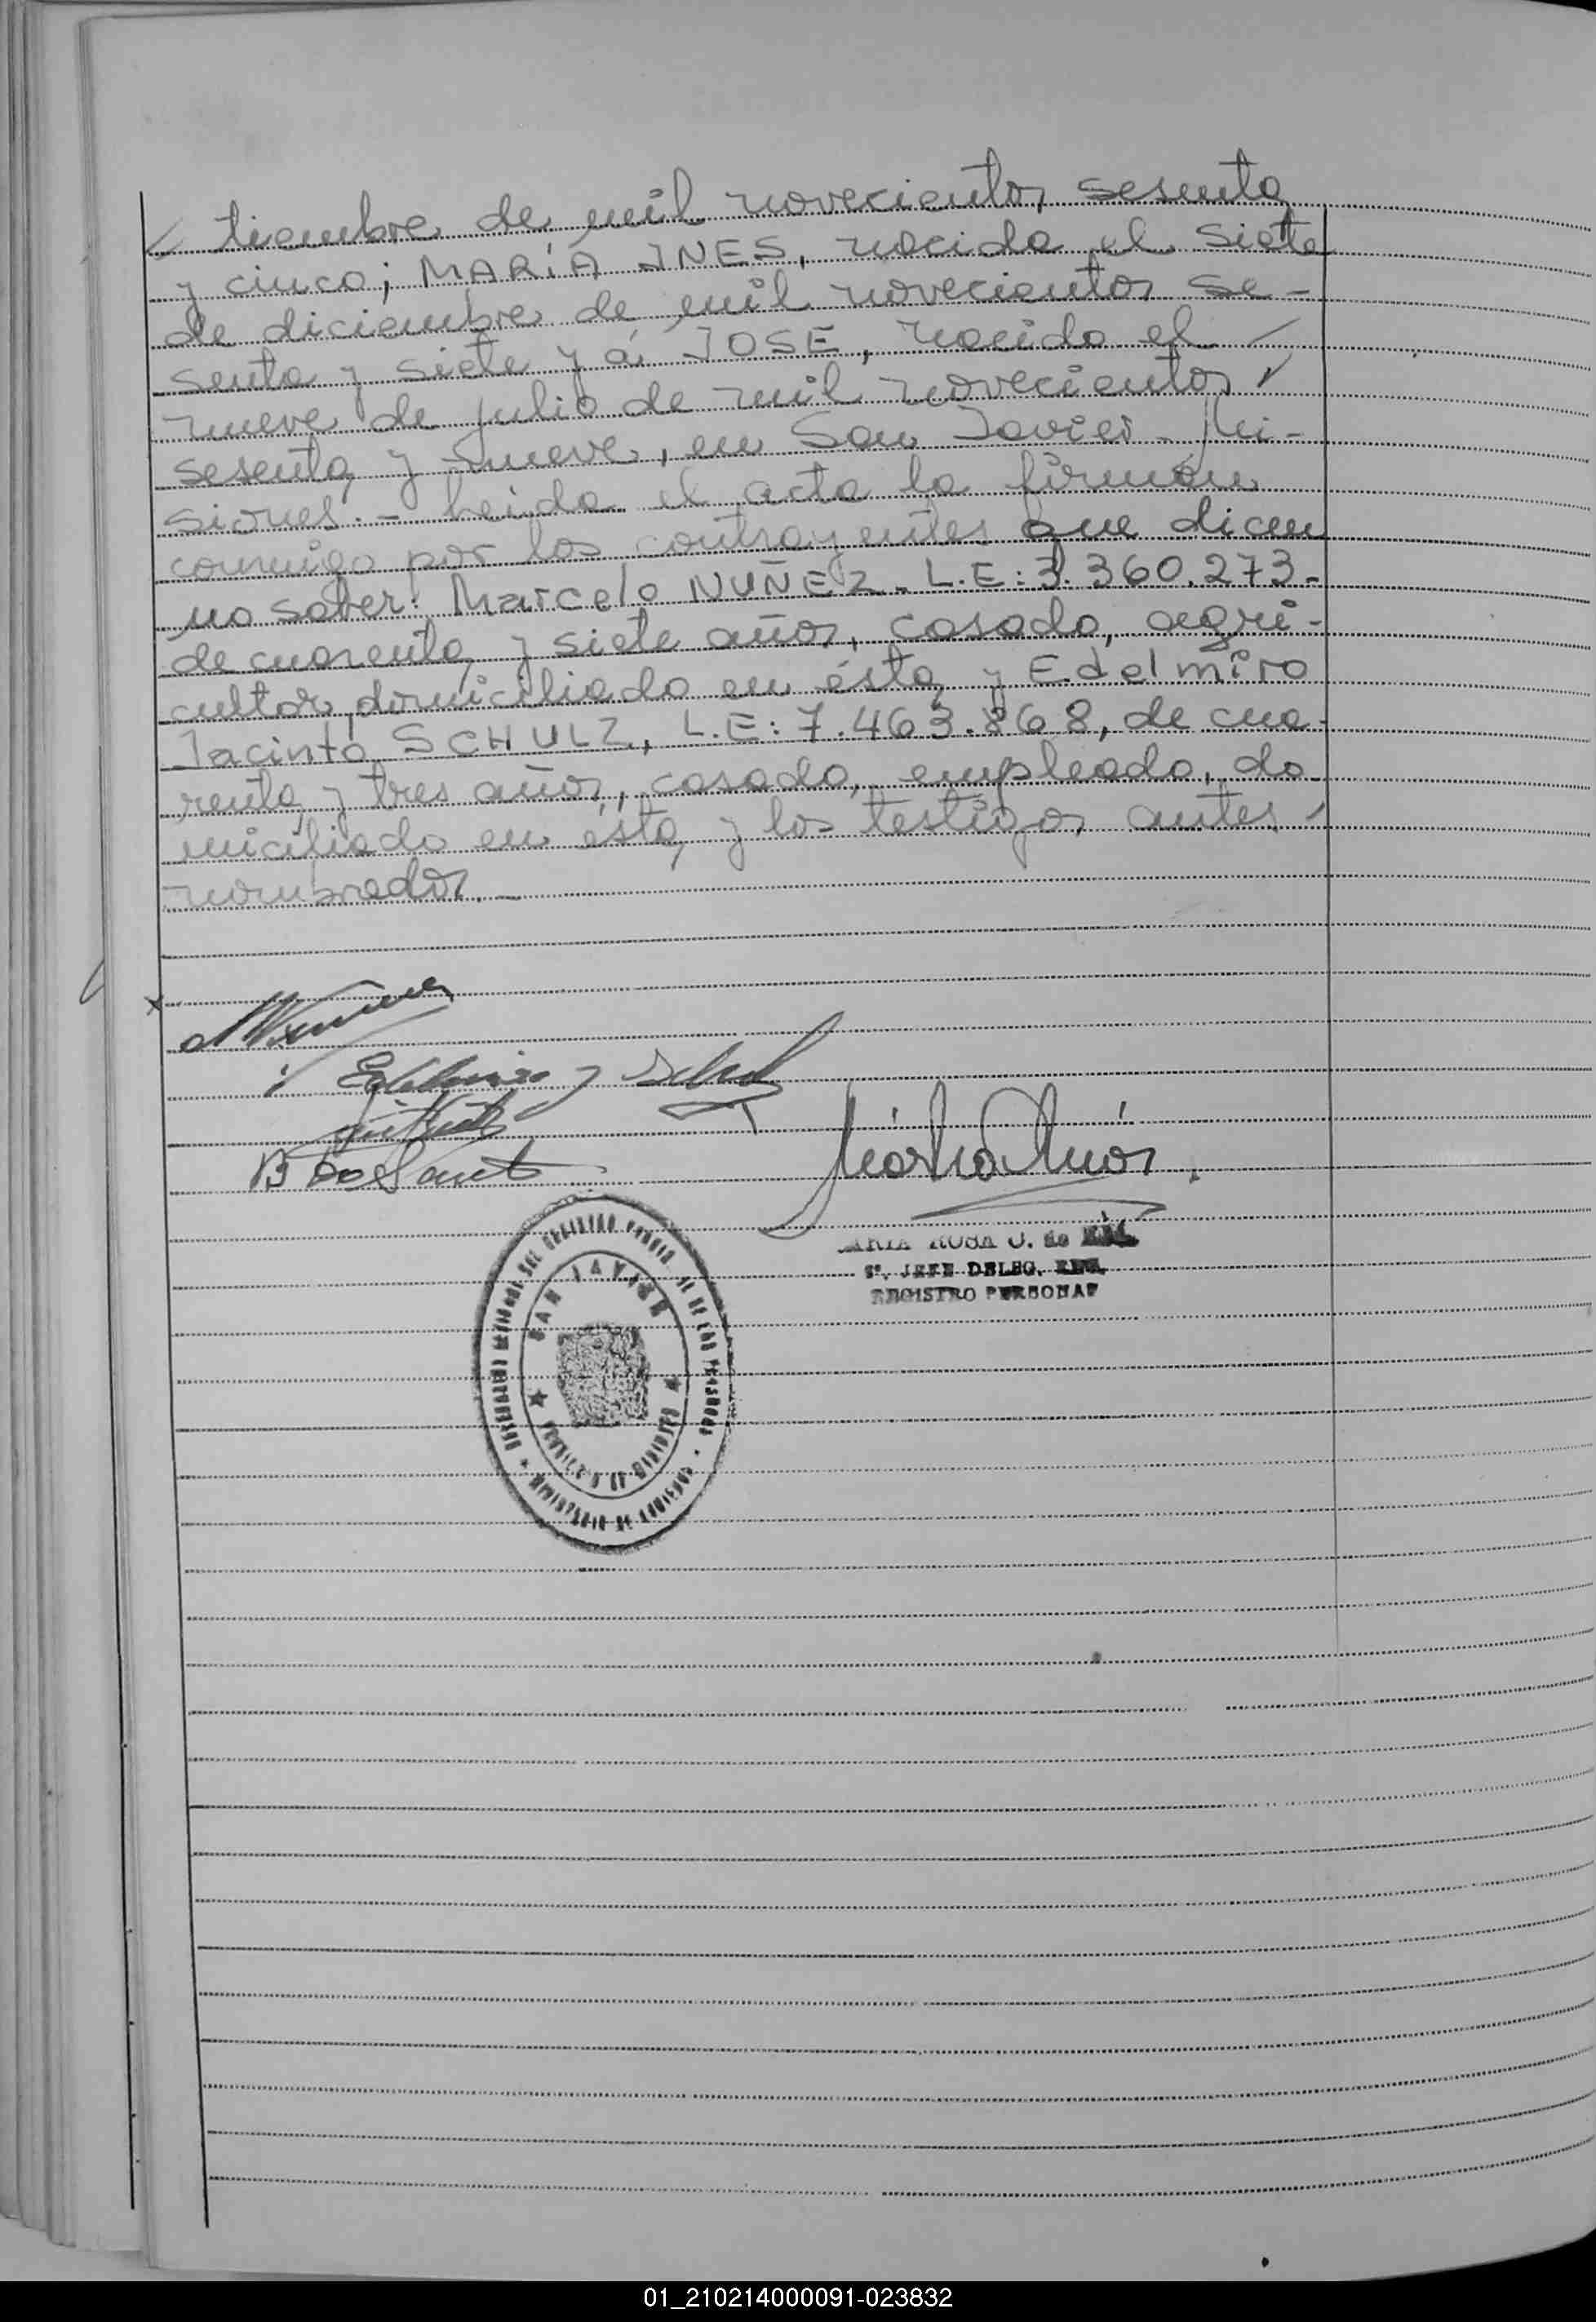 tiembre de mil novecientos sesenta
y cinco; MARÍA INES, nacida el siete
de diciembre de mil novecientos se-
senta y siete y á JOSE, nacido el
nueve de julio de mil novecientos
sesenta y nueve, en San Javier - Mi-
siones. - Leída el acta la firman
conmigo por los contrayentes que dicen
no saber: Marcelo NUÑEZ - L.E: 3.360.273 -
de cuarenta y siete años, casado, agri-
cultor, domiciliado en ésta y Edelmiro
Jacinto SCHULZ, L.E: 7.463.868, de cua-
renta y tres años, casado, empleado, do
miciliado en ésta y los testigos antes
nombrados. -
B Dos Sant
ARIA ROSA O. de
JEFE DELEG.
REGISTRO PERSONA
SAN JAVIER
01_210214000091-023832